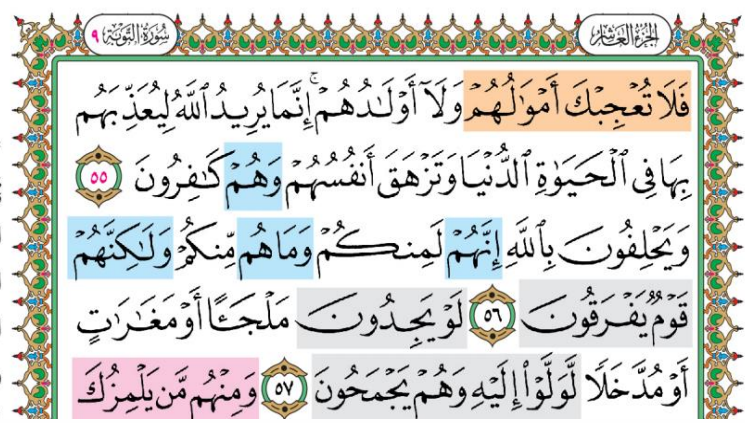 سُورَةُ التَّوْبَةِ ٩
الجُزْءُ العَاشِرُ
فَلَا تُعْجِبْكَ أَمْوَٰلُهُمْ وَلَآ أَوْلَٰدُهُمْ ۚ إِنَّمَا يُرِيدُ ٱللَّهُ لِيُعَذِّبَهُم
بِهَا فِى ٱلْحَيَوٰةِ ٱلدُّنْيَا وَتَزْهَقَ أَنفُسُهُمْ وَهُمْ كَٰفِرُونَ ٥٥
وَيَحْلِفُونَ بِٱللَّهِ إِنَّهُمْ لَمِنكُمْ وَمَا هُم مِّنكُمْ وَلَٰكِنَّهُمْ
قَوْمٌ يَفْرَقُونَ ٥٦ لَوْ يَجِدُونَ مَلْجَـًٔا أَوْ مَغَٰرَٰتٍ
أَوْ مُدَّخَلًا لَّوَلَّوْا۟ إِلَيْهِ وَهُمْ يَجْمَحُونَ ٥٧ وَمِنْهُم مَّن يَلْمِزُكَ